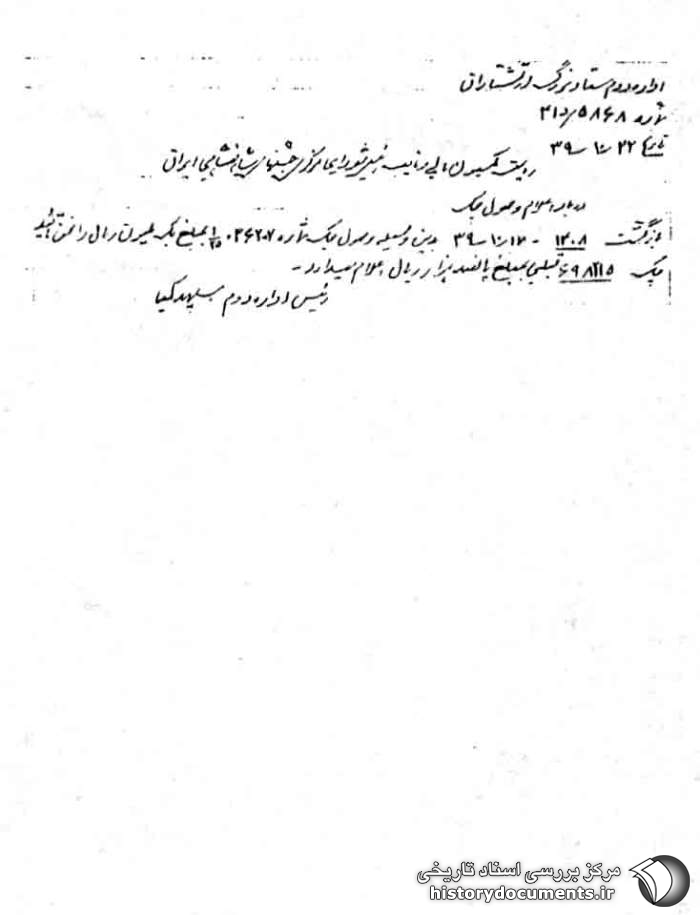 اداره دوم ستاد بزرگ ارتشتاران
شماره ۵۸۶۸/د۳۱
تاریخ ۲۲-۱۰-۳۹
ریاست کمیسیون مالی و نایب رئیس شورای مرکزی جشنهای شاهنشاهی ایران
درباره اعلام وصول چک
بازگشت ۱۳۰۸ - ۱۷-۱۰-۳۹ بدین وسیله وصول چک شماره ۰۳۶۲۰۷ بمبلغ یک میلیون ریال را
چک قبلی بمبلغ پانصد هزار ریال اعلام میدارد -
رئیس اداره دوم سپهبد کیا
مرکز بررسی اسناد تاریخی
historydocuments.ir